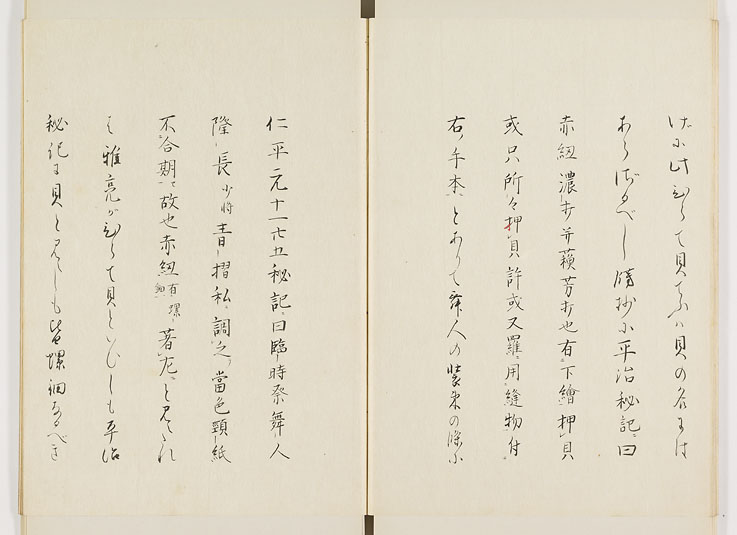 げに此ひらて貝てふハ貝の名には
あらざるべし餝抄に平治秘記ニ曰
赤紐濃打并蘓芳打也有下繪押貝
或只所々押貝許或又羅用縫物付
右手本とありて舞人の装束の條に
仁平元十一廿五秘記ニ曰臨時祭舞人
隆長少将青摺私調之當色頸紙
不合期故也赤紐有螺鈿著左と見えたれ
は雅亮がひらて貝といひしも平治
秘記に貝と見えしも皆螺鈿なるべき